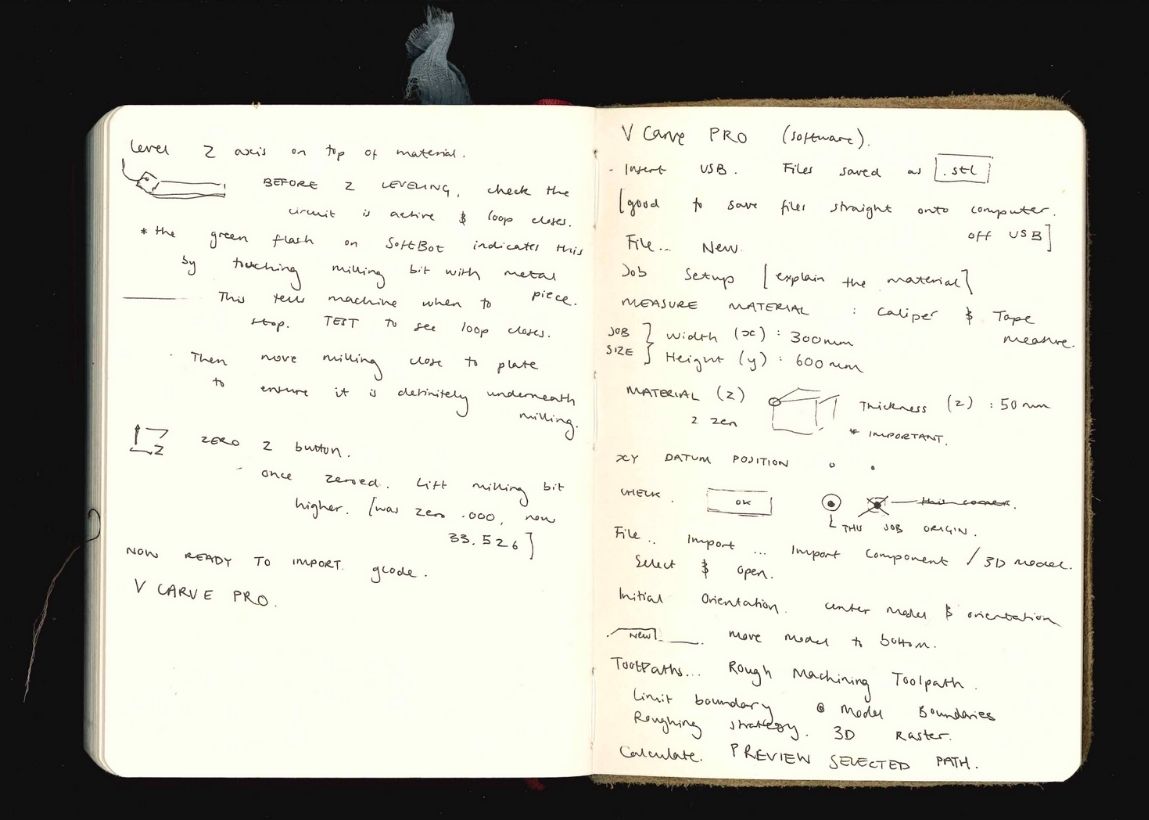 Level Z axis on top of material.
BEFORE Z LEVELING, check the
circuit is active & loop closes.
* the green flash on SoftBot indicates this
by touching milling bit with metal
piece.
This tells machine when to
stop. TEST to see loop closes.
Then move milling close to plate
to ensure it is definitely underneath
milling.
Z ZERO Z button.
once zeroed. Lift milling bit
higher. [was zero .000, now
33.526]
NOW READY TO IMPORT gcode.
V CARVE PRO.
V Carve PRO (software).
- Insert USB. Files saved as .stl
[good to save files straight onto computer.
off USB]
File... New
Job Setup [explain the material]
MEASURE MATERIAL : Caliper & Tape
measure.
JOB SIZE } Width (x) : 300mm
Height (y) : 600mm
MATERIAL (Z) Thickness (z) : 50mm
* IMPORTANT.
XY DATUM POSITION
CHECK. OK this corner.
THIS JOB ORIGIN.
File.. Import ... Import Component / 3D model.
Select & open.
Initial Orientation. center model & orientation
NEW move model to bottom.
Toolpaths... Rough Machining Toolpath.
Limit boundary @ Model Boundaries
Roughing strategy. 3D Raster.
Calculate. PREVIEW SELECTED PATH.